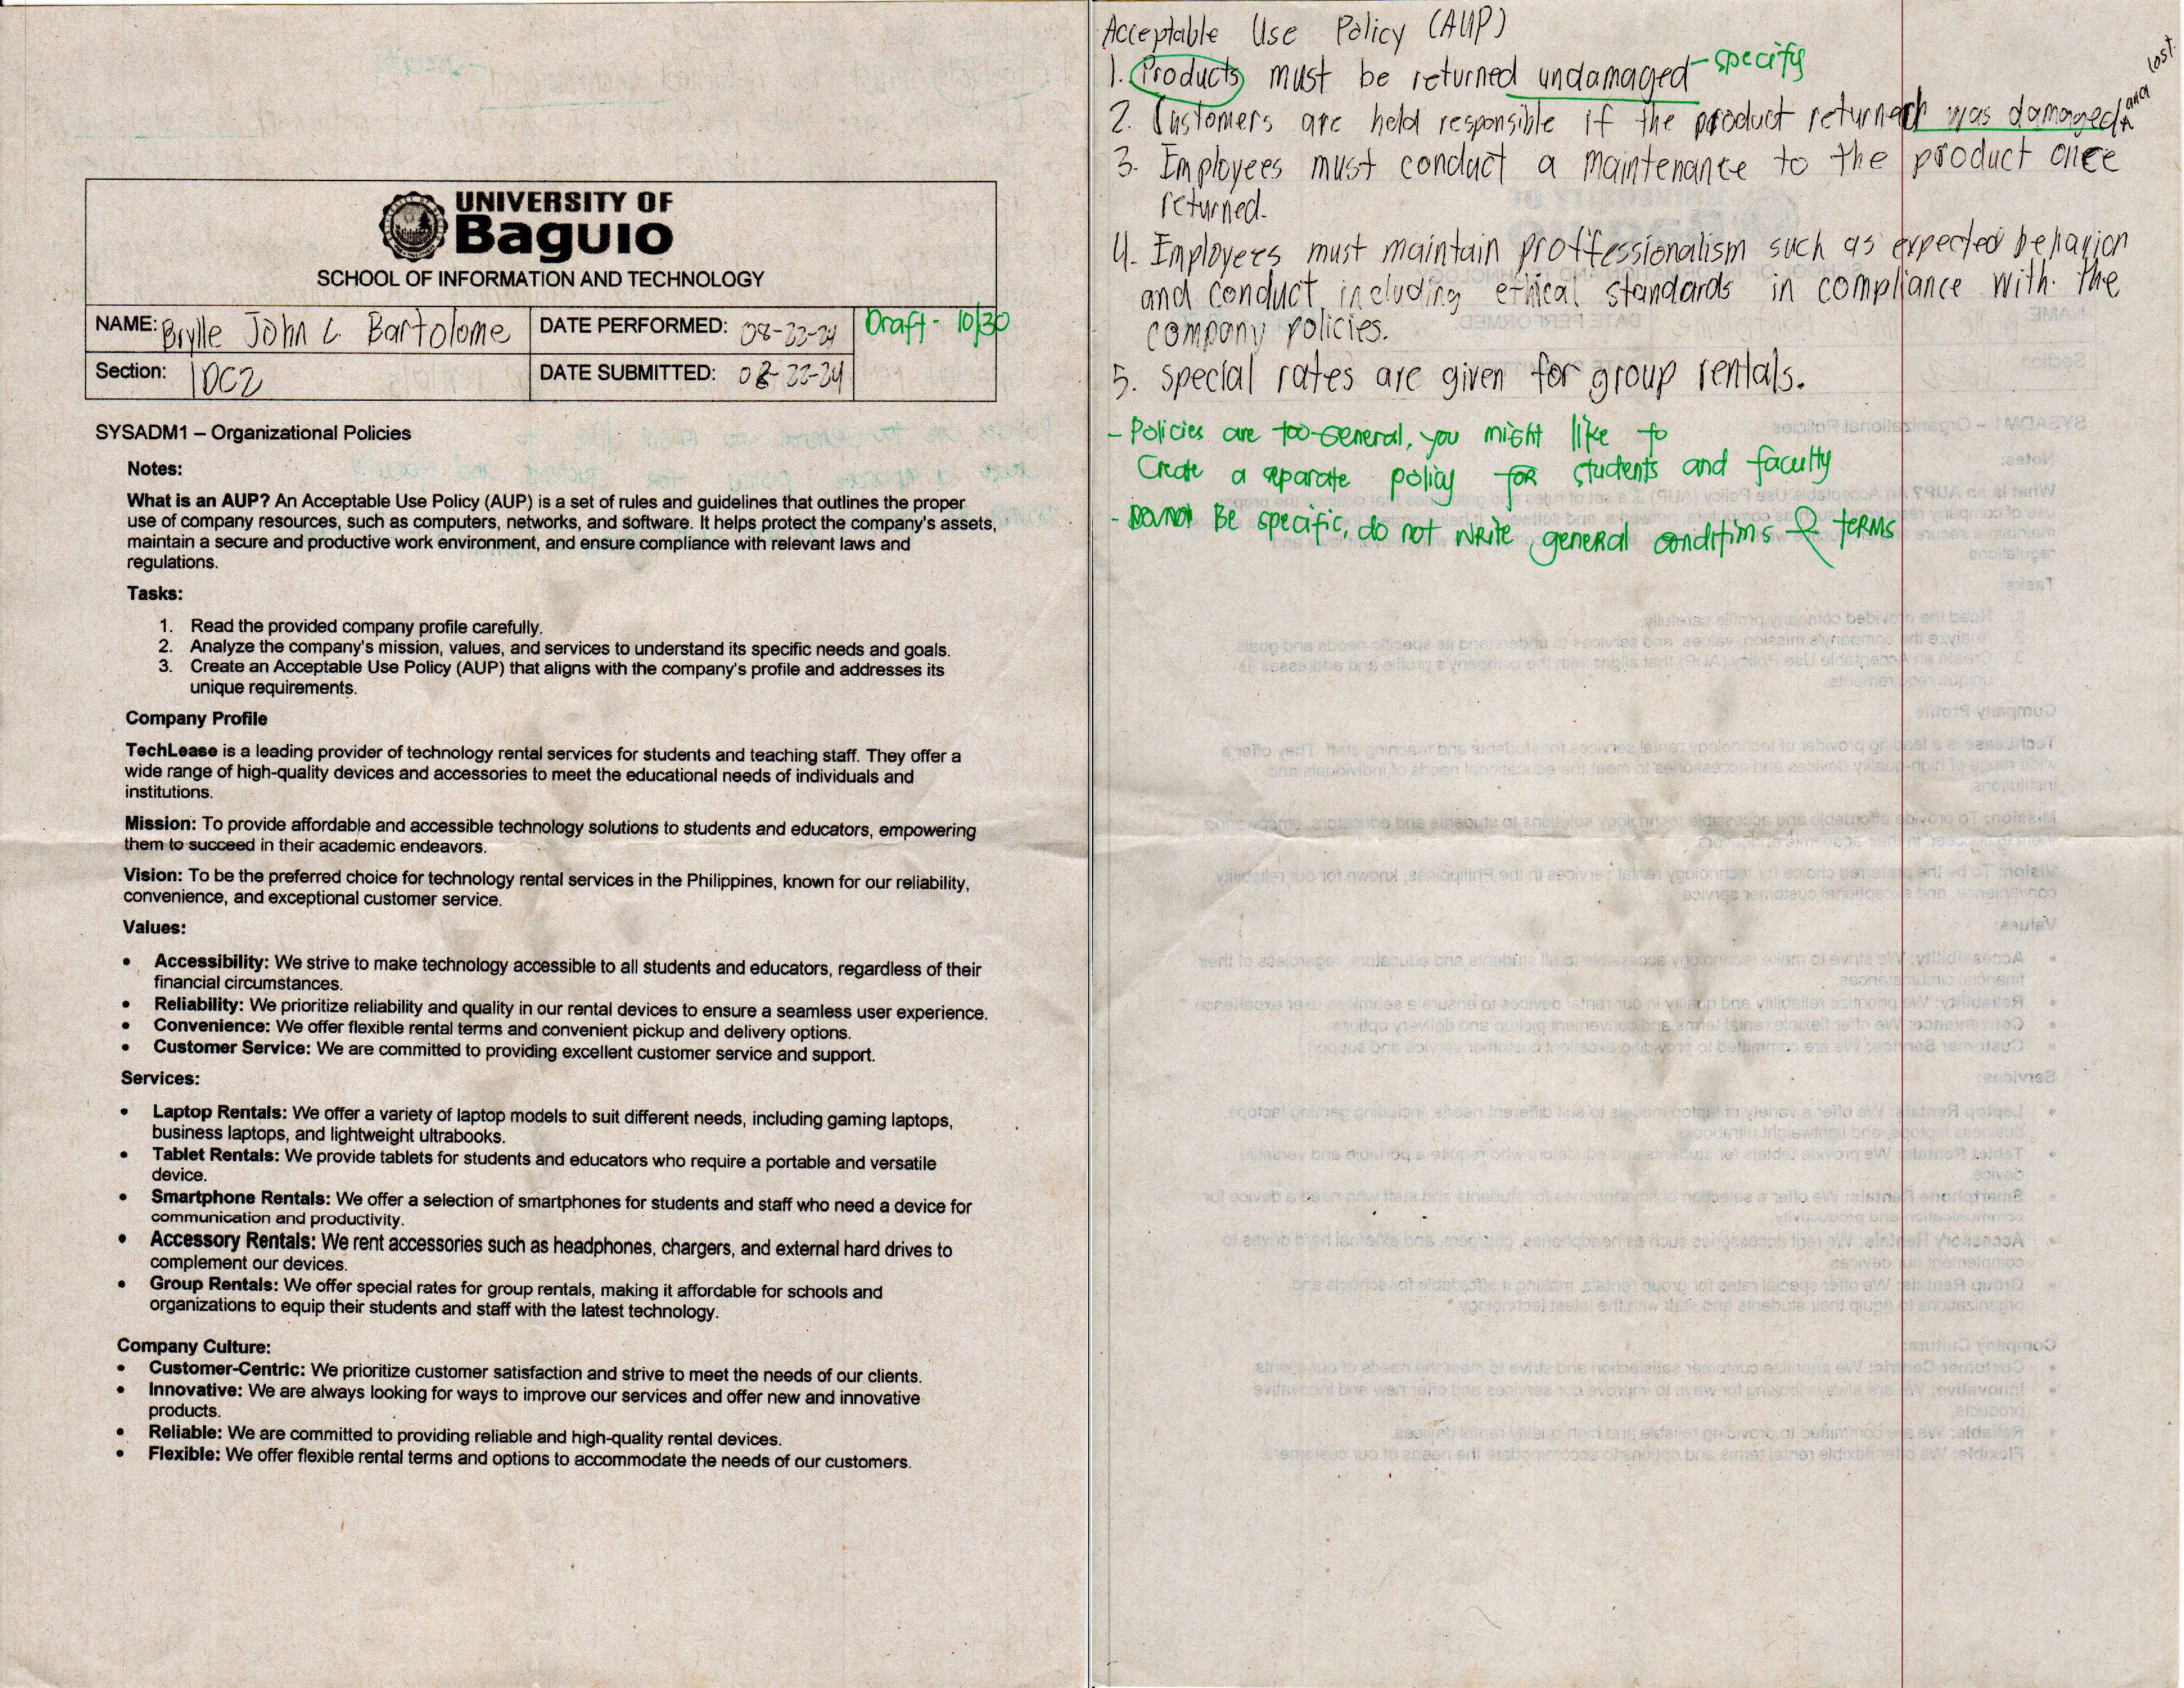 UNIVERSITY OF
Baguio
SCHOOL OF INFORMATION AND TECHNOLOGY
NAME: Brylle John C. Bartolome DATE PERFORMED: 08-22-24 Draft - 10/30
Section: IDC2 DATE SUBMITTED: 08-22-24
SYSADM1 – Organizational Policies
Notes:
What is an AUP? An Acceptable Use Policy (AUP) is a set of rules and guidelines that outlines the proper
use of company resources, such as computers, networks, and software. It helps protect the company's assets,
maintain a secure and productive work environment, and ensure compliance with relevant laws and
regulations.
Tasks:
1. Read the provided company profile carefully.
2. Analyze the company's mission, values, and services to understand its specific needs and goals.
3. Create an Acceptable Use Policy (AUP) that aligns with the company's profile and addresses its
unique requirements.
Company Profile
TechLease is a leading provider of technology rental services for students and teaching staff. They offer a
wide range of high-quality devices and accessories to meet the educational needs of individuals and
institutions.
Mission: To provide affordable and accessible technology solutions to students and educators, empowering
them to succeed in their academic endeavors.
Vision: To be the preferred choice for technology rental services in the Philippines, known for our reliability,
convenience, and exceptional customer service.
Values:
• Accessibility: We strive to make technology accessible to all students and educators, regardless of their
financial circumstances.
• Reliability: We prioritize reliability and quality in our rental devices to ensure a seamless user experience.
• Convenience: We offer flexible rental terms and convenient pickup and delivery options.
• Customer Service: We are committed to providing excellent customer service and support.
Services:
• Laptop Rentals: We offer a variety of laptop models to suit different needs, including gaming laptops,
business laptops, and lightweight ultrabooks.
• Tablet Rentals: We provide tablets for students and educators who require a portable and versatile
device.
• Smartphone Rentals: We offer a selection of smartphones for students and staff who need a device for
communication and productivity.
• Accessory Rentals: We rent accessories such as headphones, chargers, and external hard drives to
complement our devices.
• Group Rentals: We offer special rates for group rentals, making it affordable for schools and
organizations to equip their students and staff with the latest technology.
Company Culture:
• Customer-Centric: We prioritize customer satisfaction and strive to meet the needs of our clients.
• Innovative: We are always looking for ways to improve our services and offer new and innovative
products.
• Reliable: We are committed to providing reliable and high-quality rental devices.
• Flexible: We offer flexible rental terms and options to accommodate the needs of our customers.
Acceptable Use Policy (AUP)
1. Products must be returned undamaged - specify
2. Customers are held responsible if the product returned was damaged and lost.
3. Employees must conduct a maintenance to the product once
returned.
4. Employees must maintain proffessionalism such as expected behavior
and conduct including ethical standards in compliance with the
company policies.
5. special rates are given for group rentals.
- Policies are too general, you might like to
Create a separate policy for students and faculty
- Be specific, do not write general conditions & terms